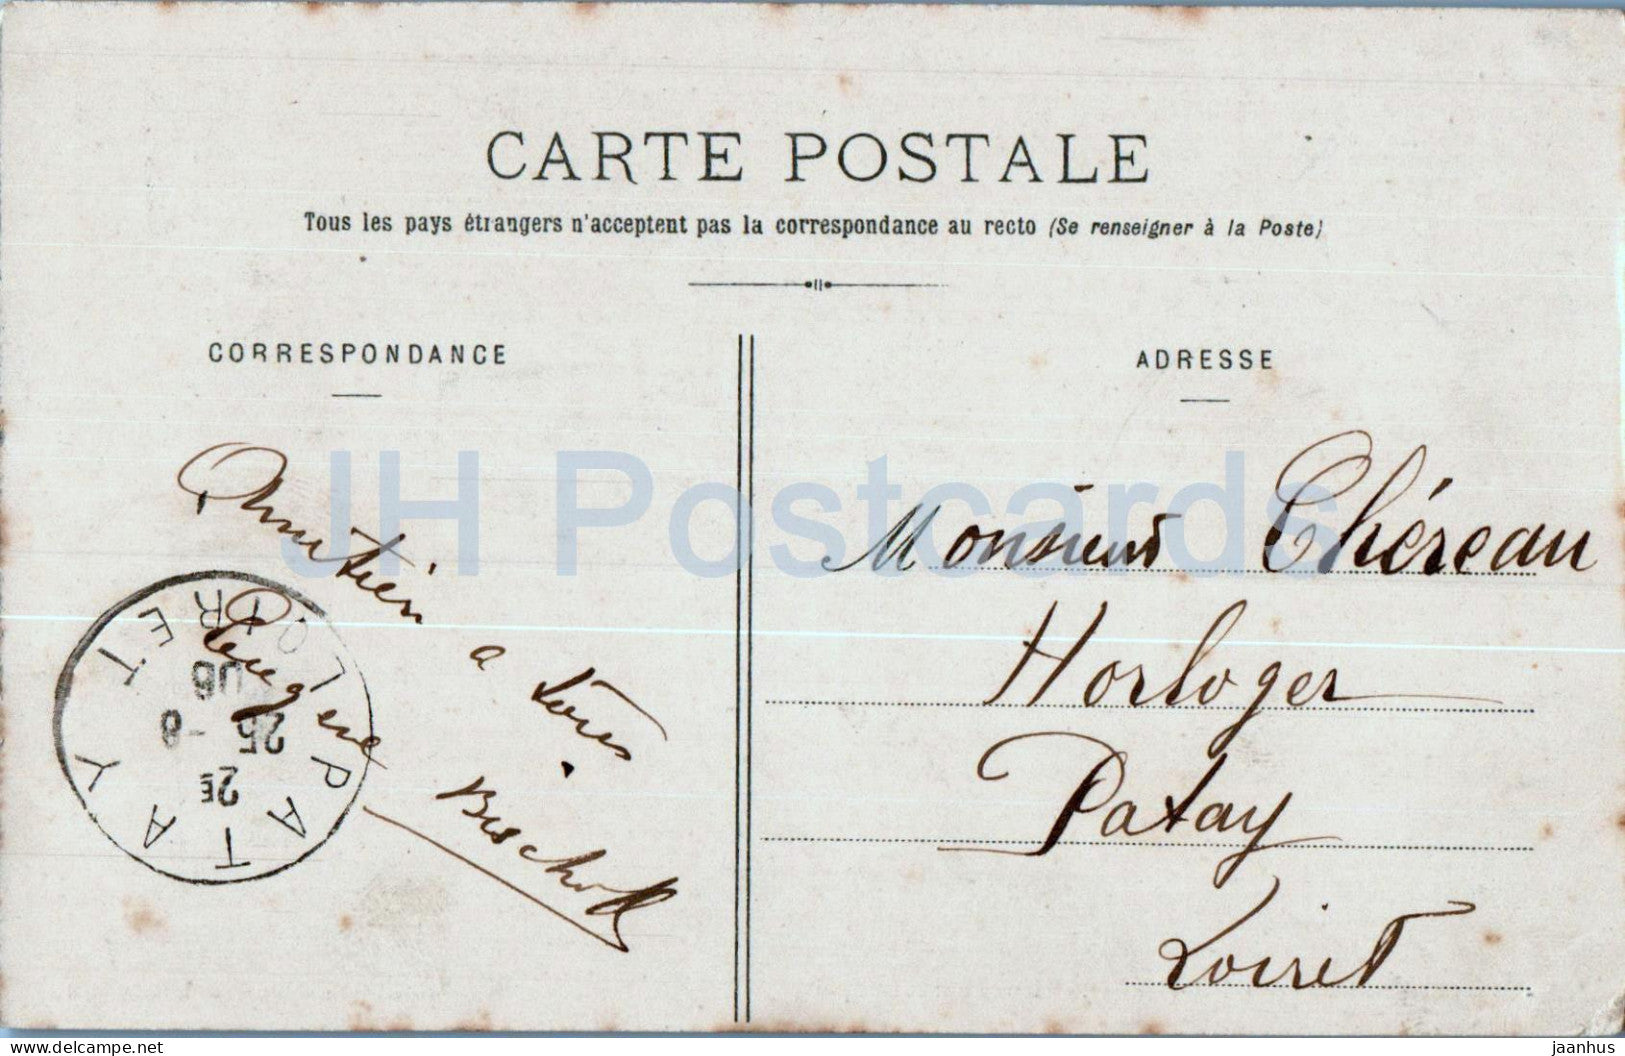 CARTE POSTALE
Tous les pays étrangers n'acceptent pas la correspondance au recto (Se renseigner à la Poste)
CORRESPONDANCE
ADRESSE
Amitiés a tous
Bischoff
Monsieur Chéreau
Horloger
Patay
Loiret
PATAY
LOIRET
2E
25 -8
06
JH Postcards
www.delcampe.net
jaanhus